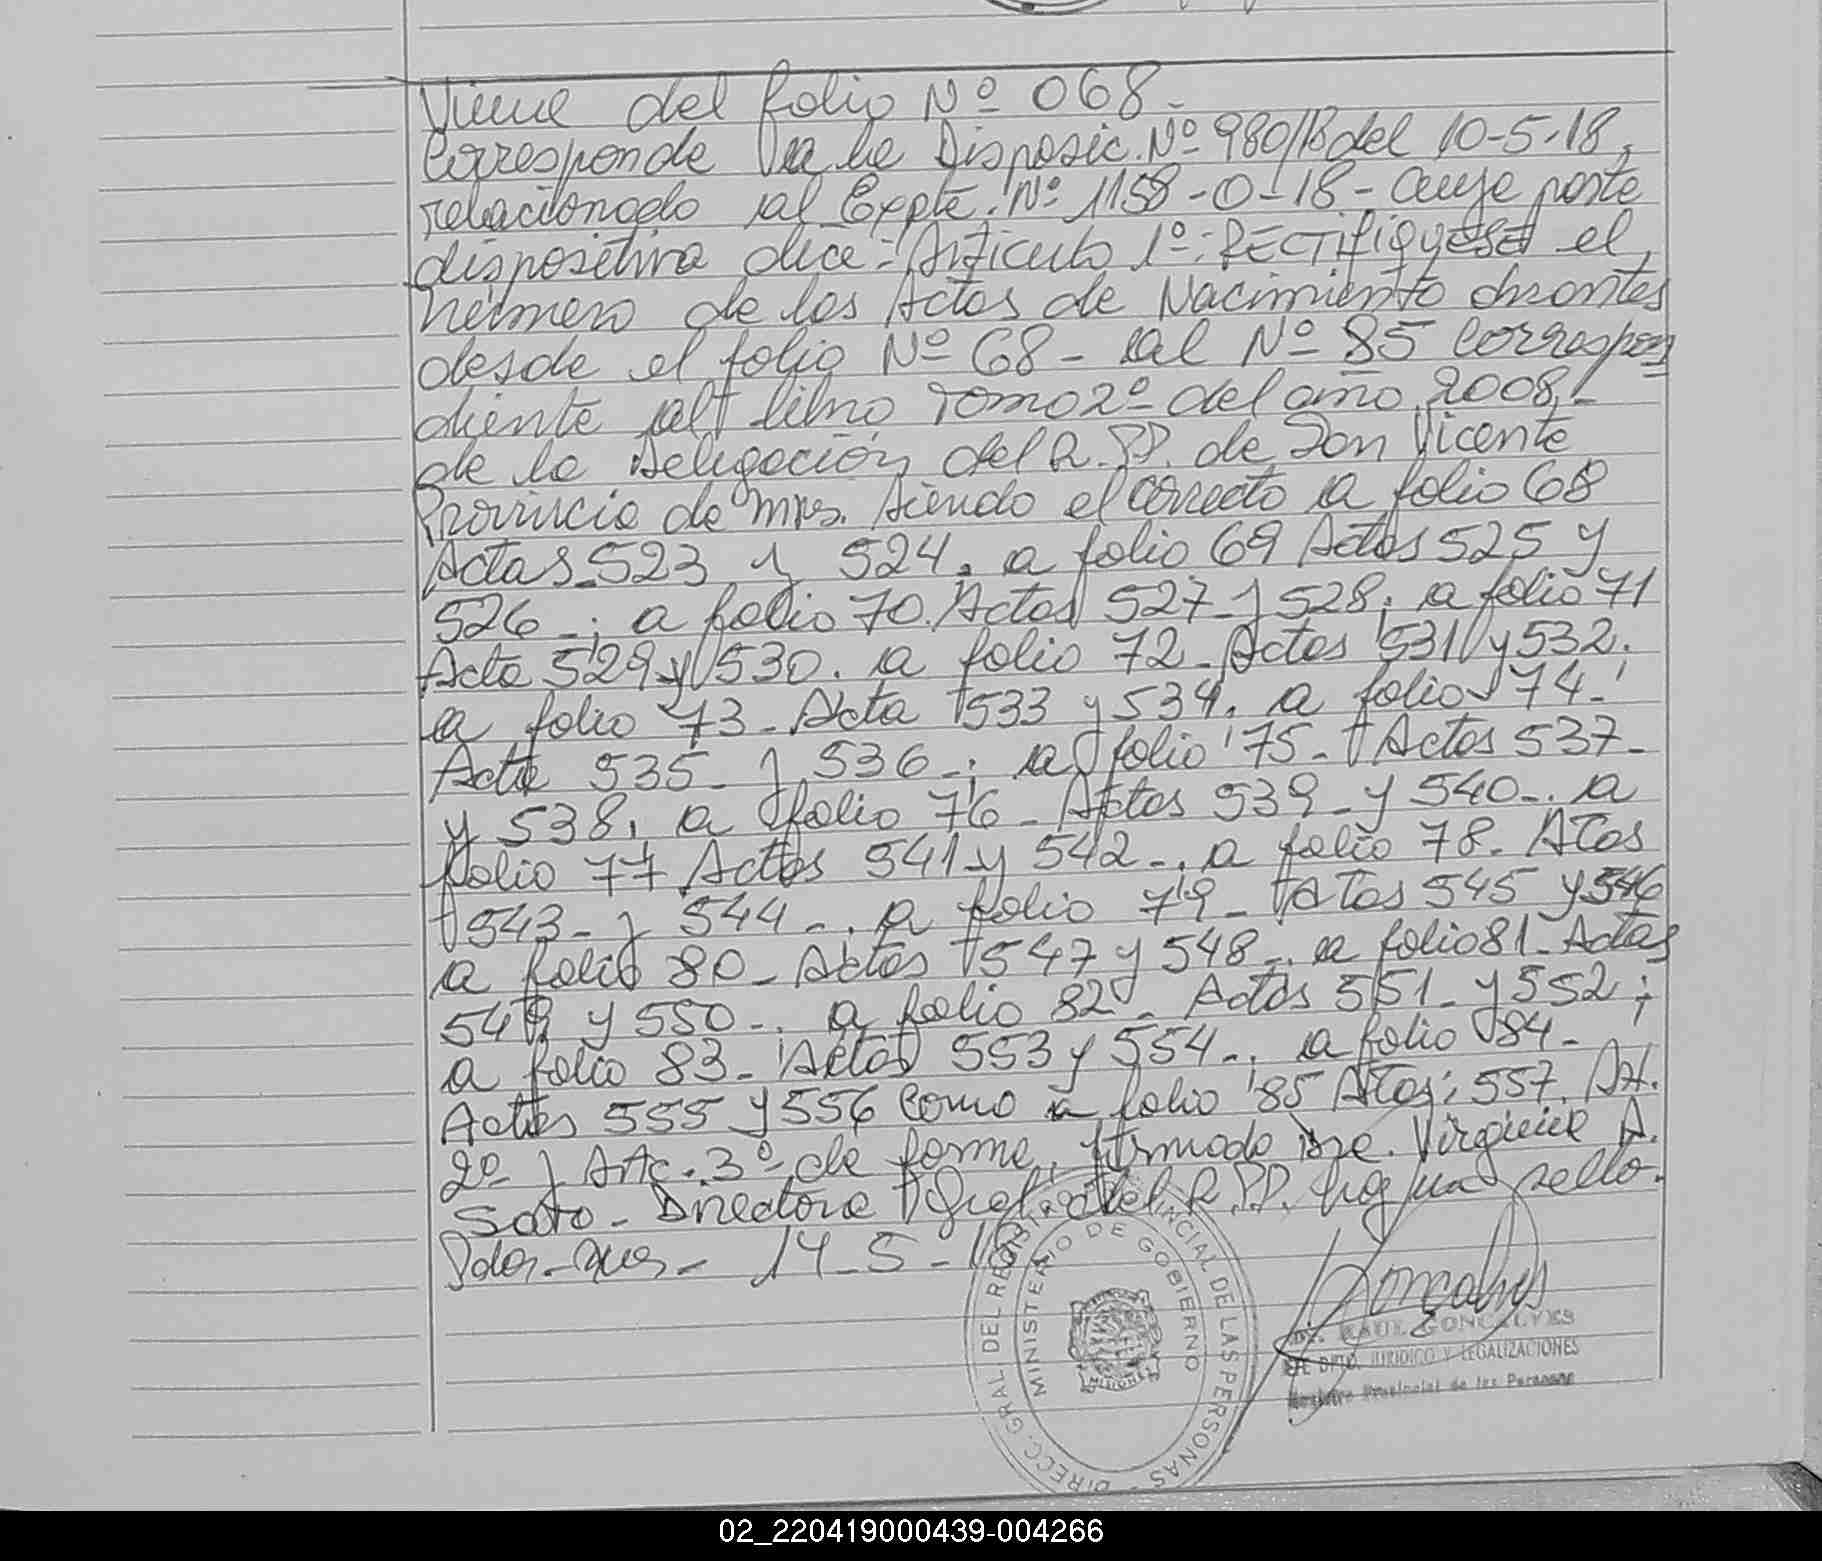 Viene del folio Nº 068-
Corresponde a la Disposic. Nº 980/18 del 10-5-18,
relacionado al Expte. Nº 1158-O-18- Cuya parte
dispositiva dice: Articulo 1º: RECTIFIQUESE el
número de las Actas de Nacimiento obrantes
desde el folio Nº 68- al Nº 85 correspon
diente al libro Tomo 2º del año 2008,-
de la Delegación del R.P.P. de San Vicente
Provincia de Mnes. siendo el correcto a folio 68
Actas 523 y 524. a folio 69 Actas 525 y
526-; a folio 70. Actas 527- y 528; a folio 71
Acta 529 y 530. a folio 72- Actas 531 y 532.
a folio 73- Acta 533 y 534. a folio 74-
Acta 535- y 536-; a folio 75- Actas 537-
y 538, a folio 76- Actas 539- y 540-. a
folio 77 Actas 541 y 542-. a folio 78. Atas
543- y 544-. a folio 79- Atas 545 y 546
a folio 80- Actas 547 y 548-. a folio 81- Actas
549 y 550-. a folio 82- Actas 551- y 552;
a folio 83- Actas 553 y 554-. a folio 84-
Actas 555 y 556 como a folio 85 Atas; 557. Art.
2º- y Art. 3º- de forma, firmado Virginia A.
Soto- Directora Gral. del R.P.P. hay un sello.
Pdas. Mnes- 14-5-18
DIRECC. GRAL. DEL REGISTRO PROVINCIAL DE LAS PERSONAS
MINISTERIO DE GOBIERNO
MISIONES
Goncalves
Dr. RAUL GONCALVES
JEFE DPTO. JURIDICO Y LEGALIZACIONES
Registro Provincial de las Personas
02_220419000439-004266